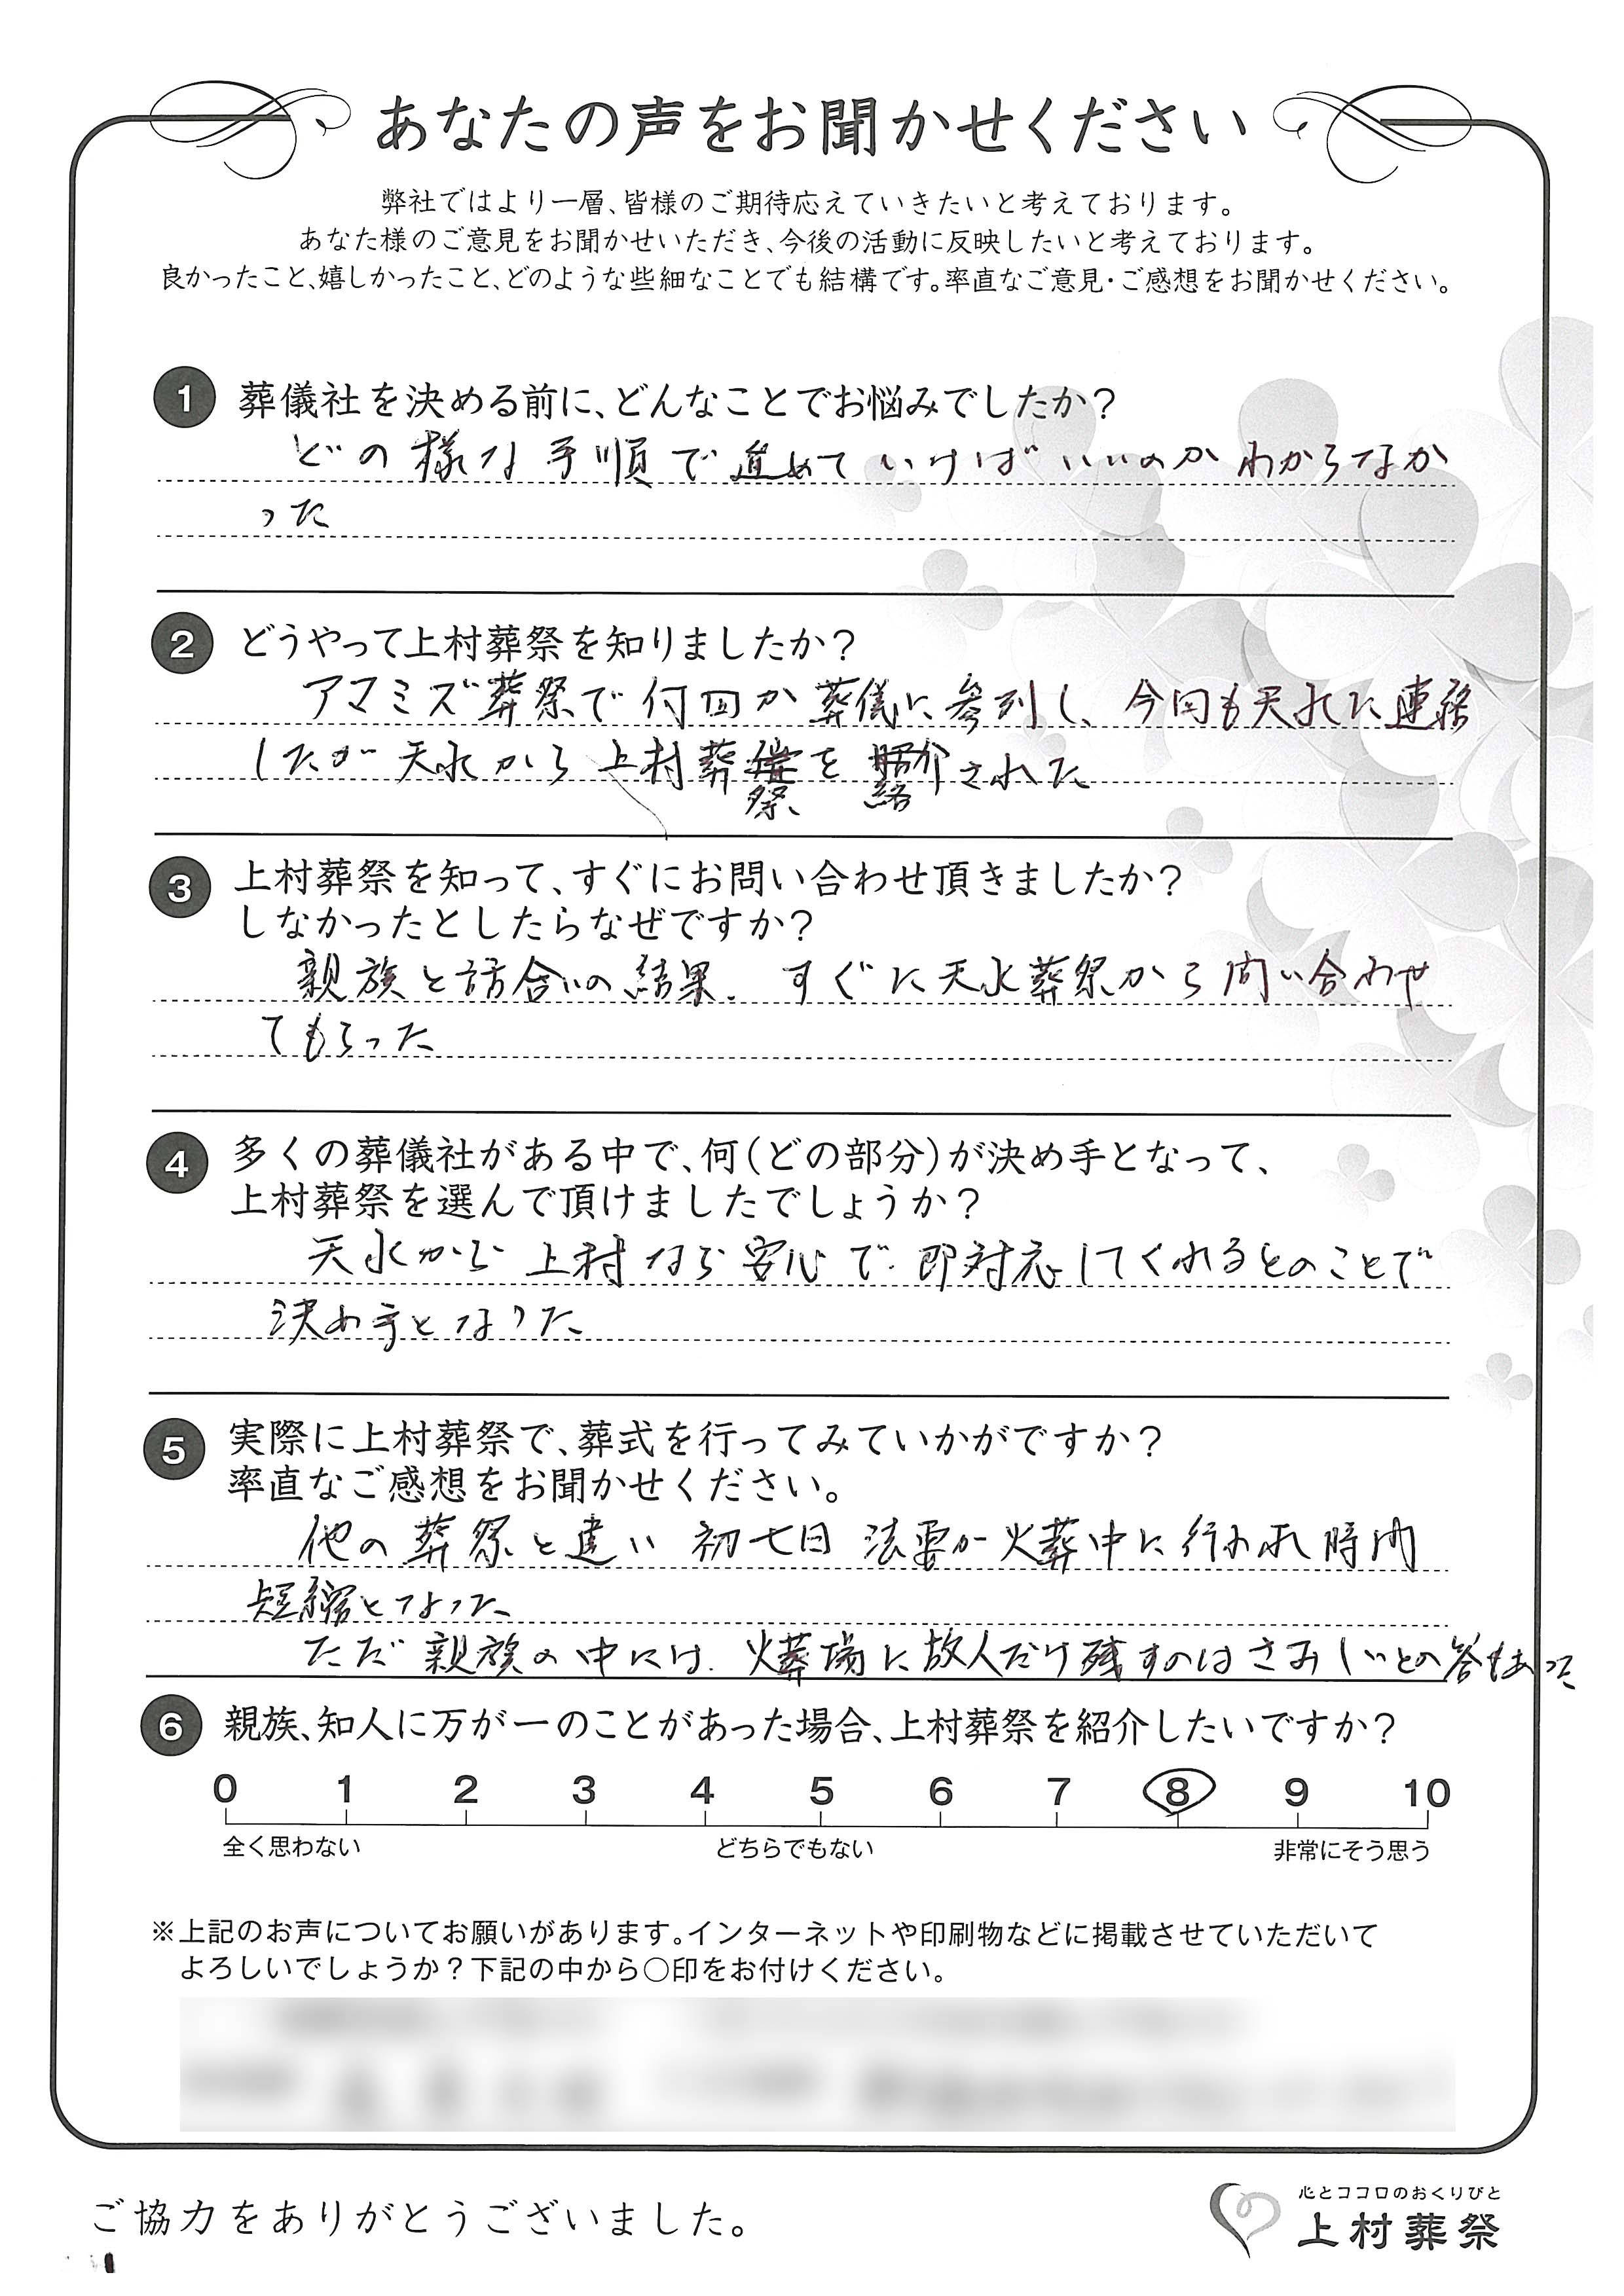 あなたの声をお聞かせください
弊社ではより一層、皆様のご期待応えていきたいと考えております。
あなた様のご意見をお聞かせいただき、今後の活動に反映したいと考えております。
良かったこと、嬉しかったこと、どのような些細なことでも結構です。率直なご意見・ご感想をお聞かせください。
1 葬儀社を決める前に、どんなことでお悩みでしたか?
どの様な手順で進めていけばいいのかわからなか
った
2 どうやって上村葬祭を知りましたか?
アマミズ葬祭で何回か葬儀に参列し、今回も天水に連絡
したが天水から上村葬祭を紹介された
3 上村葬祭を知って、すぐにお問い合わせ頂きましたか?
しなかったとしたらなぜですか?
親族と話合いの結果、すぐに天水葬祭から問い合わせ
てもらった
4 多くの葬儀社がある中で、何(どの部分)が決め手となって、
上村葬祭を選んで頂けましたでしょうか?
天水から上村なら安心で即対応してくれるとのことで
決め手となった
5 実際に上村葬祭で、葬式を行ってみていかがですか?
率直なご感想をお聞かせください。
他の葬祭と違い 初七日 法要が火葬中に行われ時間
短縮となった
ただ親族の中には、火葬場に故人だけ残すのはさみしいとの答もあった
6 親族、知人に万が一のことがあった場合、上村葬祭を紹介したいですか?
0 1 2 3 4 5 6 7 8 9 10
全く思わない どちらでもない 非常にそう思う
※上記のお声についてお願いがあります。インターネットや印刷物などに掲載させていただいて
よろしいでしょうか?下記の中から○印をお付けください。
ご協力をありがとうございました。
心とココロのおくりびと
上村葬祭